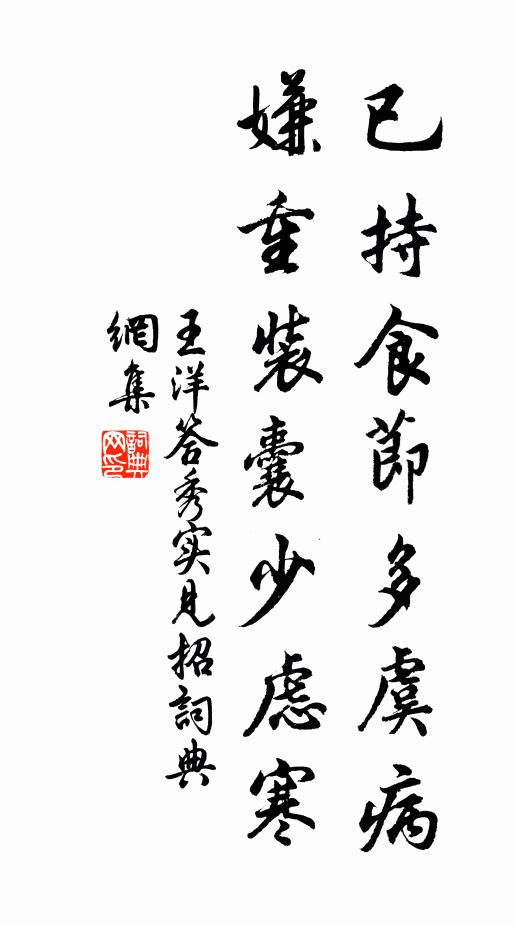 已持食節多虞病
嫌重裝囊少慮寒
王洋答秀实見招詞典
網集
詞典網印